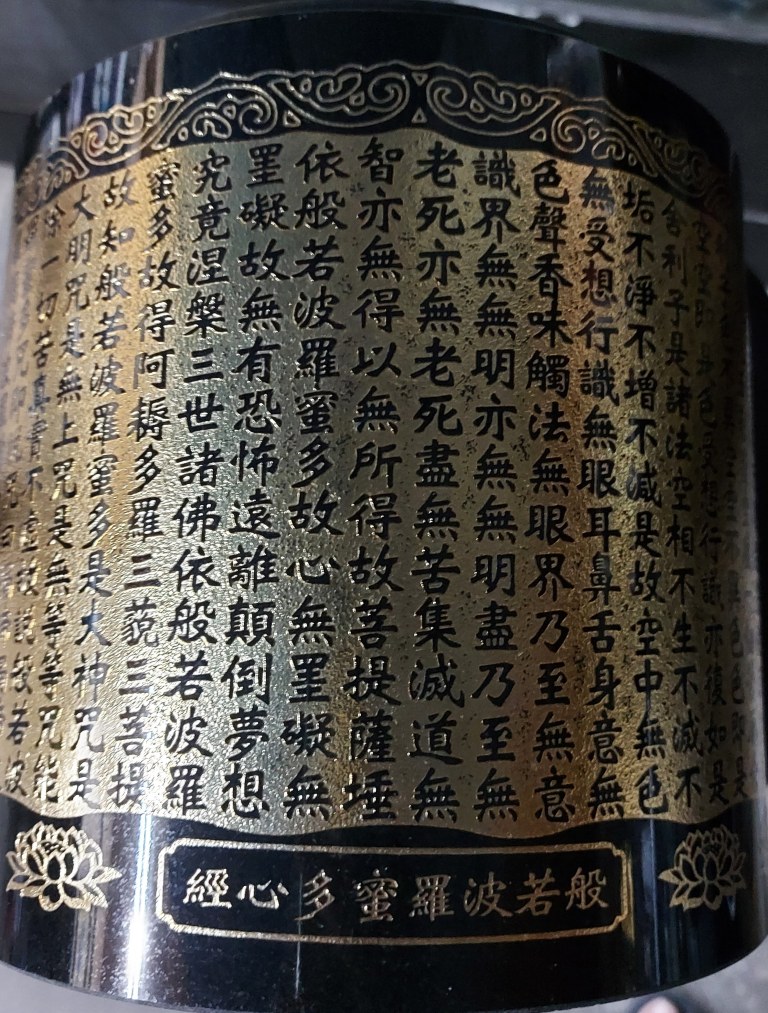 色即是
空空即是色受想行識亦復如是
舍利子是諸法空相不生不滅不
垢不淨不增不減是故空中無色
無受想行識無眼耳鼻舌身意無
色聲香味觸法無眼界乃至無意
識界無無明亦無無明盡乃至無
老死亦無老死盡無苦集滅道無
智亦無得以無所得故菩提薩埵
依般若波羅蜜多故心無罣礙無
罣礙故無有恐怖遠離顛倒夢想
究竟涅槃三世諸佛依般若波羅
蜜多故得阿耨多羅三藐三菩提
故知般若波羅蜜多是大神咒是
大明咒是無上咒是無等等咒能
除一切苦真實不虛故說般若波
般若波羅蜜多心經